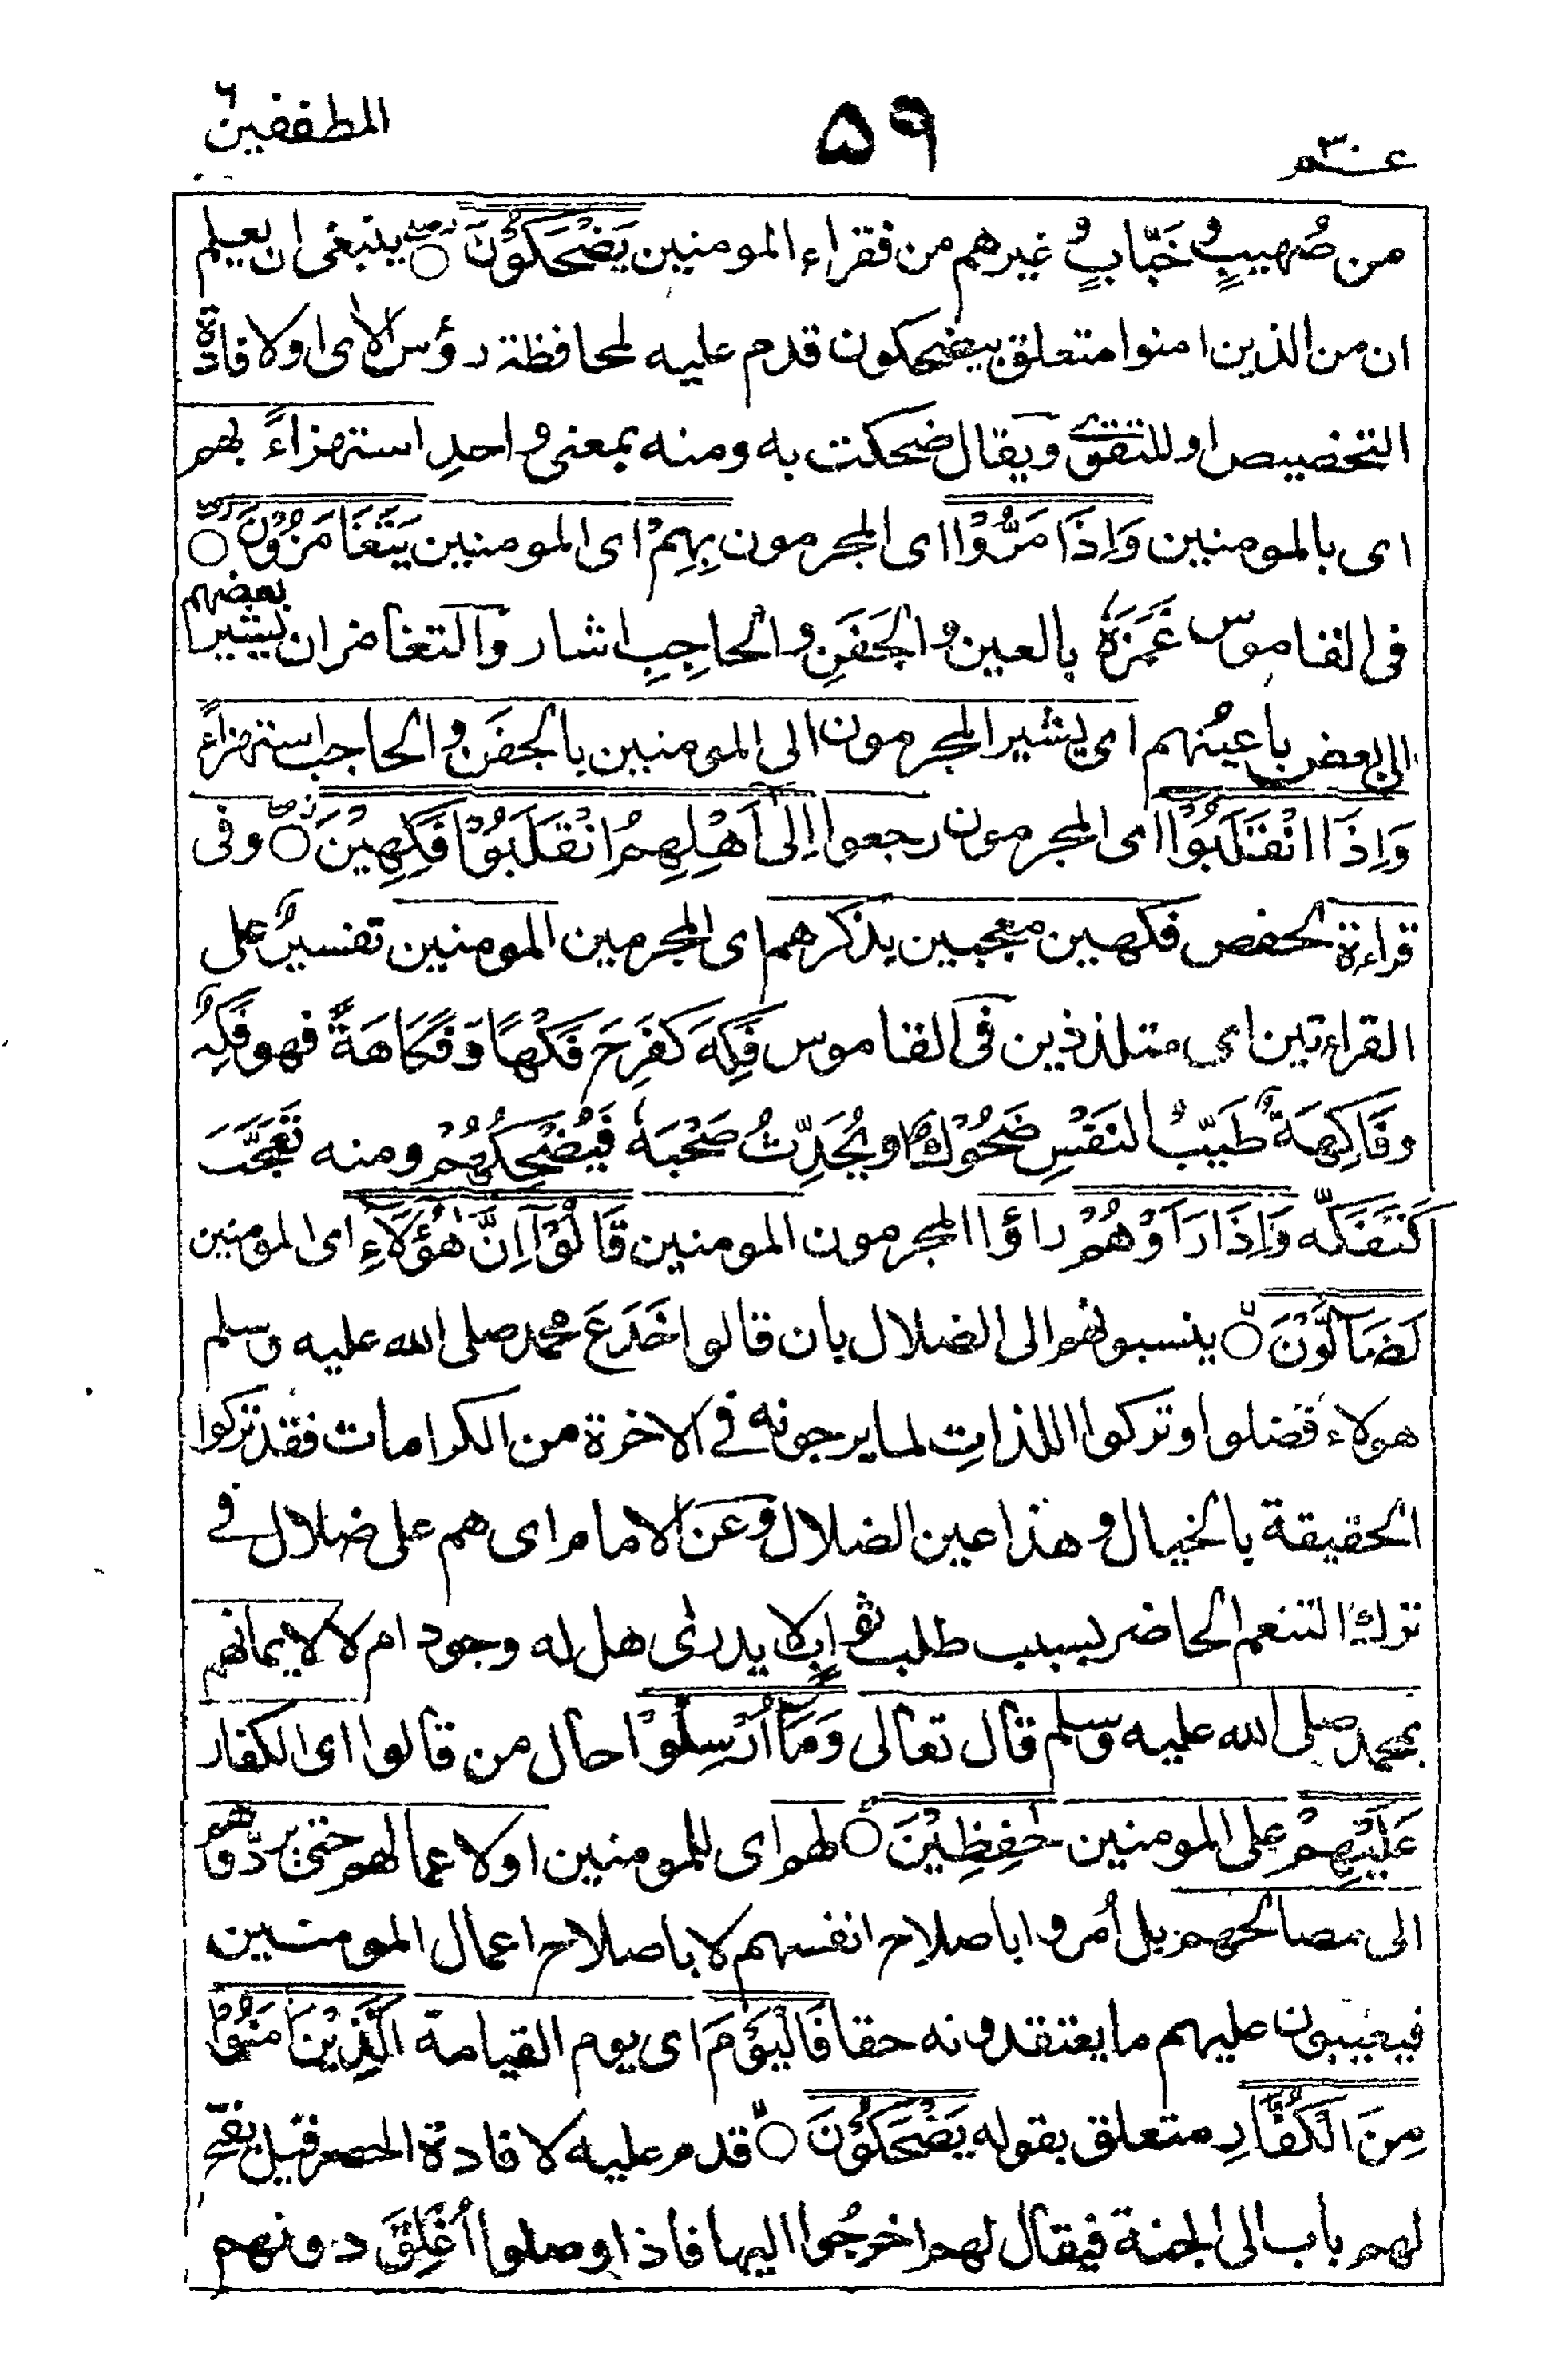 عـم ٣٠
٥٩
المطففين
من صُهيبٍ و خَبّابٍ و غيرهم من فقراء المومنين يَضْحَكُوْنَ ○ ينبغى ان يعلم
ان من الذين امنوا متعلق بيضحكون قدم عليه لمحافظة رؤس الاٰى او لافادة
التخصيص او للتقوى ويقال ضحكت به ومنه بمعنى واحدٍ استهزاءً بهم
اى بالمومنين وَاِذَا مَرُّوْا اى المجرمون بِهِمْ اى المومنين يَتَغَامَزُوْنَ ○
فى القاموس غَمَزَهٗ بالعين و الجَفَنِ و الحاجِبِ اشار والتغامز ان يشير بعضهم
الى بعض باعينهم اى يشير المجرمون الى المومنين بالجفن و الحاجب استهزاءً
وَاِذَا انْقَلَبُوْا اى المجرمون رجعوا اِلٰى اَهْلِهِمُ انْقَلَبُوْا فَكِهِيْنَ ○ وفى
قراءة الحفص فكهين معجبين بذكرهم اى المجرمين المومنين تفسيرٌ على
القراءتين اى متلذذين فى القاموس فَكِهَ كفَرِحَ فَكَهًا وَفَكَاهَةً فهو فَكِهٌ
وفَاكِهَةٌ طَيّبُ النَفَسِ ضَحُوْكٌ او يُحَدِّثُ صَحْبَهٗ فَيُضْحِكُهُمْ ومنه تَعَجَّبَ
كَتَفَكَّه وَاِذَا رَاَوْهُمْ راؤا المجرمون المومنين قَالُوْا اِنَّ هٰؤُلَاءِ اى المومنين
لَضَالُّوْنَ ○ ينسبونهم الى الضلال بان قالوا خَدَعَ محمد صلى الله عليه وسلم
هولاء فضلوا وتركوا اللذاتِ لما يرجونه فى الاخرة من الكرامات فقد تركوا
الحقيقة بالخيال و هذا عين الضلال و عن الامام اى هم على ضلال فى
ترك التنعم الحاضر بسبب طلب ثواب لا يدرى هل له وجود ام لا لايمانهم
بمحمد صلى الله عليه وسلم قال تعالى وَمَا اُرْسِلُوْا حال من قالوا اى الكفار
عَلَيْهِمْ على المومنين حٰفِظِيْنَ ○ لهم اى للمومنين او لاعمالهم حتى يردّوهم
الى مصالحهم بل اُمروا باصلاح انفسهم لا باصلاح اعمال المومنين
فيعيبون عليهم ما يعتقدونه حقا فَالْيَوْمَ اى يوم القيامة الَّذِيْنَ اٰمَنُوْا
مِنَ الْكُفَّارِ متعلق بقوله يَضْحَكُوْنَ ○ قدم عليه لافادة الحصر قيل يفتح
لهم باب الى الجنة فيقال لهم اخرجُوا اليها فاذا وصلوا اُغْلِقَ دونهم